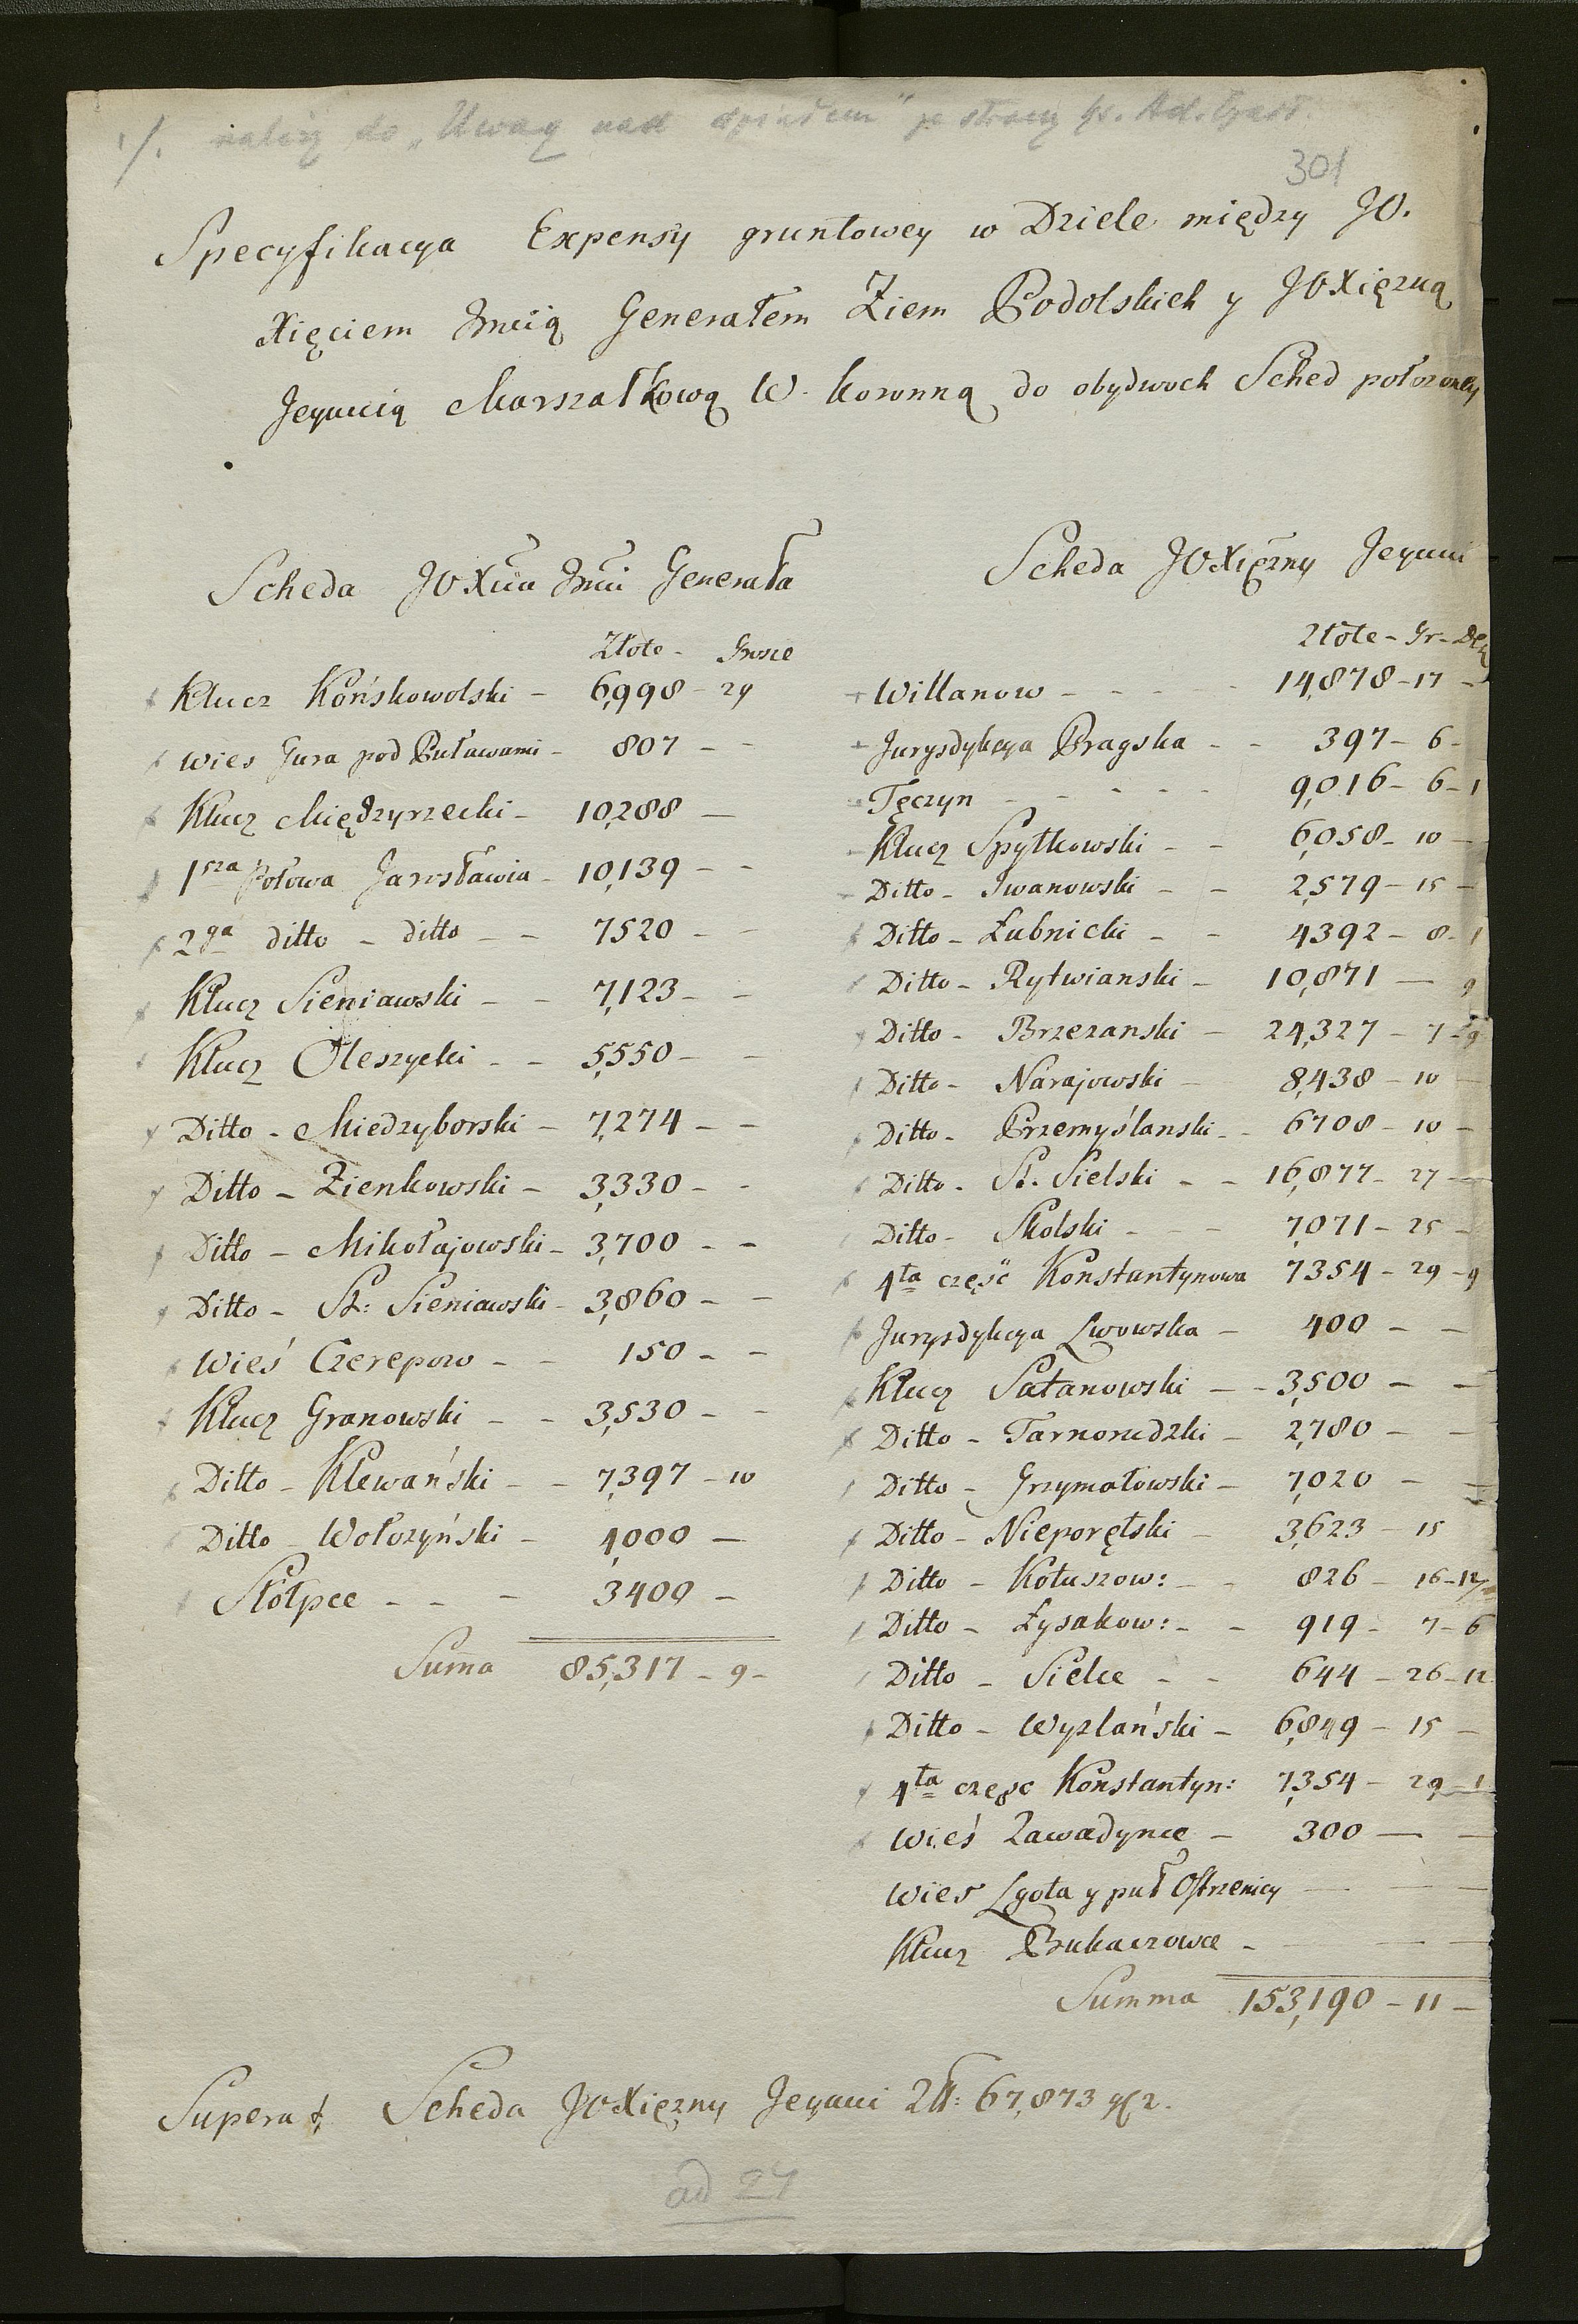 1/. należy do „Uwag nad działem" ze strony ks. Ad. Czart.
301
Specyfikacya Expensy gruntowey w Dziele między JO.
Xięciem Jmcią Generałem Ziem Podolskich y JOXiężną
Jeymcią Marszałkową W. Koronną do obydwoch Sched położoney
Scheda JOXcia Jmci Generała
Złote - Grosze
Klucz Końskowolski - 6,998 - 29
Wies Gura pod Puławami - 807 - -
Klucz Międzyrzecki - 10,288 -
1sza Połowa Jarosławia - 10,139 - -
2ga ditto - ditto - - 7520 - -
Klucz Sieniawski - - 7,123 - -
Klucz Oleszycki - - 5,550 - -
Ditto - Miedzyborski - 7,274 - -
Ditto - Zienkowski - 3,330 - -
Ditto - Mikołajowski - 3,700 - -
Ditto - St: Sieniawski - 3,860 - -
Wieś Czerepow - - 150 - -
Klucz Granowski - - 3,530 - -
Ditto - Klewański - - 7,397 - 10
Ditto - Wołozyński - 4,000 -
Stołpce - - - 3400 -
Suma 85,317 - 9 -
Scheda JOXiężny Jeymci
Złote - Gr - De
Willanow - - - - 14,878 - 17 -
Jurysdykcya Pragska - - 397 - 6 -
Tęczyn - - - - - 9,016 - 6 - 1
Klucz Spytkowski - - 6,058 - 10 -
Ditto - Iwanowski - - 2,579 - 15 -
Ditto - Łubnicki - - 4392 - 8 - 1
Ditto - Rytwianski - 10,871 - 9
Ditto - Brzezanski - 24,327 - 7 - 9
Ditto - Narajowski - 8,438 - 10 -
Ditto - Przemyślanski - - 6708 - 10 -
Ditto - St. Sielski - - 16,877 - 27 -
Ditto - Skolski - - - 7,071 - 25 -
4ta część Konstantynowa 7354 - 29 - 9
Jurysdykcya Lwowska - 400 - -
Klucz Satanowski - - 3,500 - -
Ditto - Tarnorudzki - 2,780 - -
Ditto - Grzymałowski - 7,020 - -
Ditto - Nieporętski - 3,623 - 15
Ditto - Kołuszow: - - 826 - 16 - 12
Ditto - Łysakow: - - 919 - 7 - 6
Ditto - Sielce - - 644 - 26 - 12
Ditto - Wyzlański - 6,849 - 15 -
4ta część Konstantyn: 7,354 - 29 - 1
Wieś Zawadynce - 300 - -
Wies Lgota y puł Ostrzenicy - - -
Klucz Bukaczowce - - - -
Summa 153,190 - 11 -
Superat Scheda JOXiężny Jeymci Zł: 67,873 g 2.
ad 27